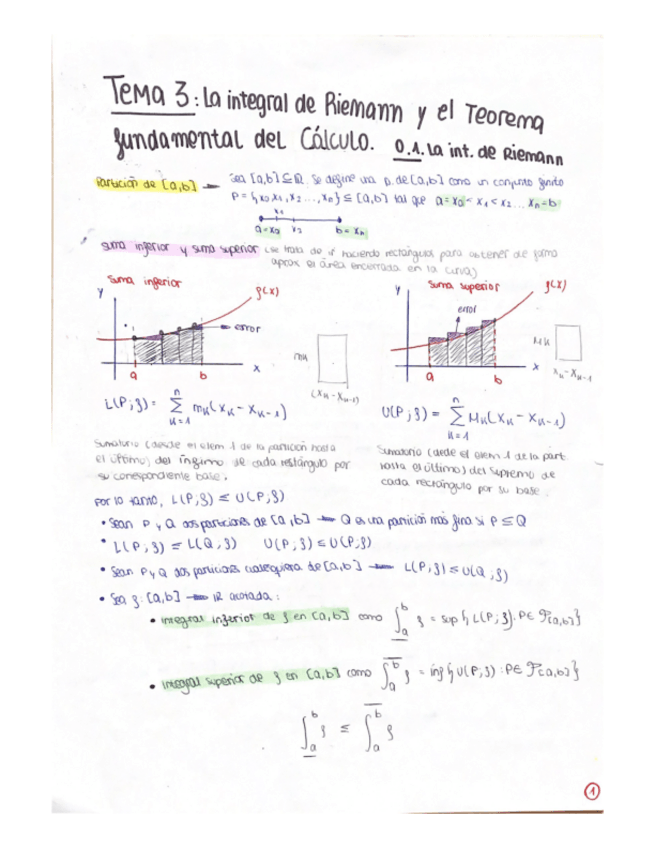 Tema 3: La integral de Riemann y el Teorema
fundamental del Cálculo. 0.1. La int. de Riemann
Partición de [a,b] → Sea [a,b] ⊆ ℝ. Se define una p. de [a,b] como un conjunto finito
P = {x0, x1, x2 ..., xn} ⊆ [a,b] tal que a = x0 < x1 < x2 ... xn = b
x1
a = x0 x2 b = xn
suma inferior y suma superior (se trata de ir haciendo rectángulos para obtener de forma
aprox el área encerrada en la curva)
suma inferior
y f(x)
error
a b x
mk
(xk - xk-1)
suma superior
y f(x)
error
a b x
Mk
xk - xk-1
L(P;f) = Σ_{k=1}^{n} mk(xk - xk-1)
U(P;f) = Σ_{k=1}^{n} Mk(xk - xk-1)
Sumatorio (desde el elem 1 de la partición hasta
el último) del ínfimo de cada rectángulo por
su correspondiente base.
Sumatorio (desde el elem 1 de la part.
hasta el último) del supremo de
cada rectángulo por su base.
Por lo tanto, L(P;f) ≤ U(P;f)
• Sean P y Q dos particiones de [a,b] → Q es una partición más fina si P ⊆ Q
• L(P;f) ≤ L(Q;f) U(P;f) ≤ U(P;f)
• Sean P y Q dos particiones cualesquiera de [a,b] → L(P;f) ≤ U(Q;f)
• Sea f: [a,b] → ℝ acotada:
• integral inferior de f en [a,b] como ∫_a^b f = sup{L(P;f): P ∈ P[a,b]}
• integral superior de f en [a,b] como ∫_a^b f = inf{U(P;f): P ∈ P[a,b]}
∫_a^b f ≤ ∫_a^b f
1